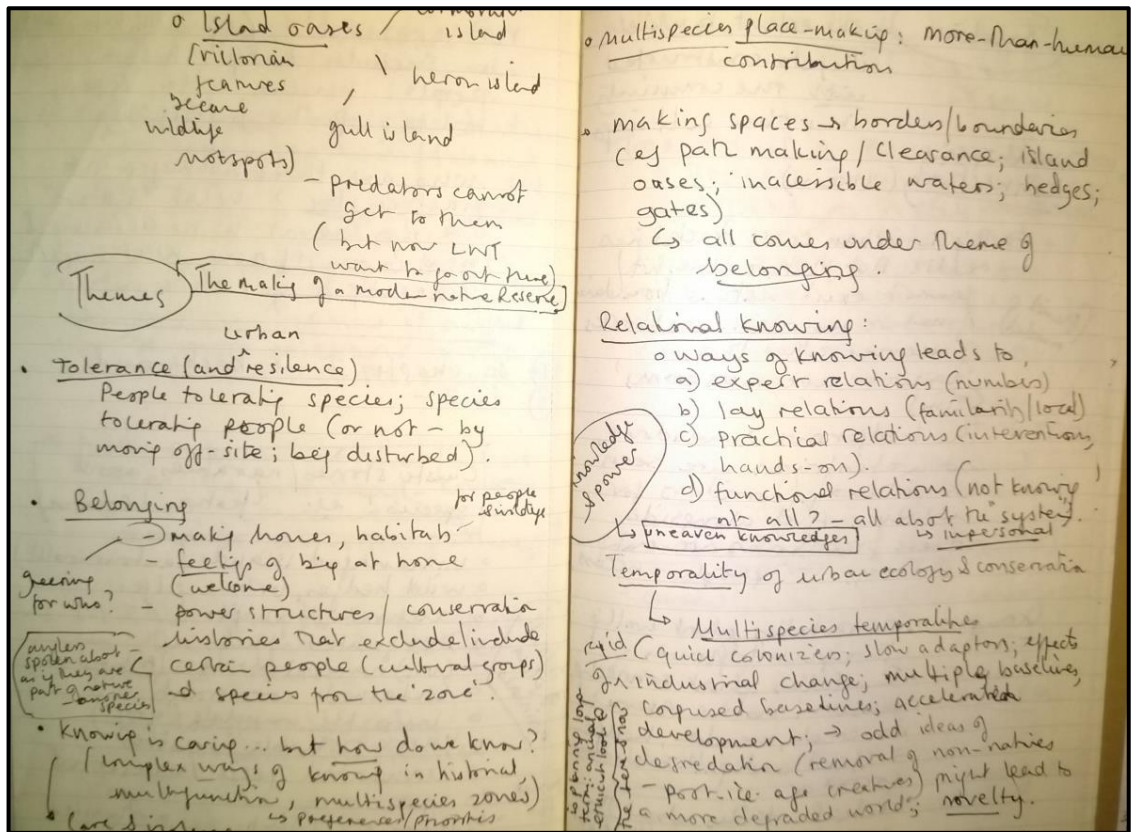 o Island oases /
island
(victorian
features \ heron island
became /
wildlife gull island
hotspots)
- predators cannot
get to them
(but now LWT
want to go out there)
Themes The making of a modern nature Reserve
urban
• Tolerance (and ^ resilence)
People tolerating species; species
tolerating people (or not - by
moving off-site; being disturbed).
• Belonging for people & wildlife
- making homes, habitats
- feelings of being at home
(welcome)
greening
for who?
- power structures / conservation
histories that exclude/include
certain people (cultural groups)
and species from the 'zone'.
anglers
spoken about
as if they are
part of nature
- another
species
• Knowing is caring... but how do we know?
(complex ways of knowing in historical,
multifunction, multispecies zones)
↳ preferences/priorities
o Multispecies place-making: more-than-human
contribution
• making spaces → borders/boundaries
(eg path making / clearance; island
oases; inacessible waters; hedges;
gates)
↳ all comes under theme of
belonging.
Relational knowing:
o ways of knowing leads to,
a) expert relations (numbers)
b) lay relations (familiarity/local)
c) practical relations (interventions,
hands-on).
d) functional relations (not knowing
at all? - all about the "system".
↳ impersonal
knowledge
is power
↳ uneaven knowledges
Temporality of urban ecology & conservation
↳ Multispecies temporalities
rapid (quick colonizers; slow adaptors; effects
of ^ industrial change; multiple baselines,
confused baselines; accelerated
development; → odd ideas of
desredation (removal of non-natives
- post-ice age creatives) might lead to
a more degraded world; novelty.
↳ planning long
term: animal /